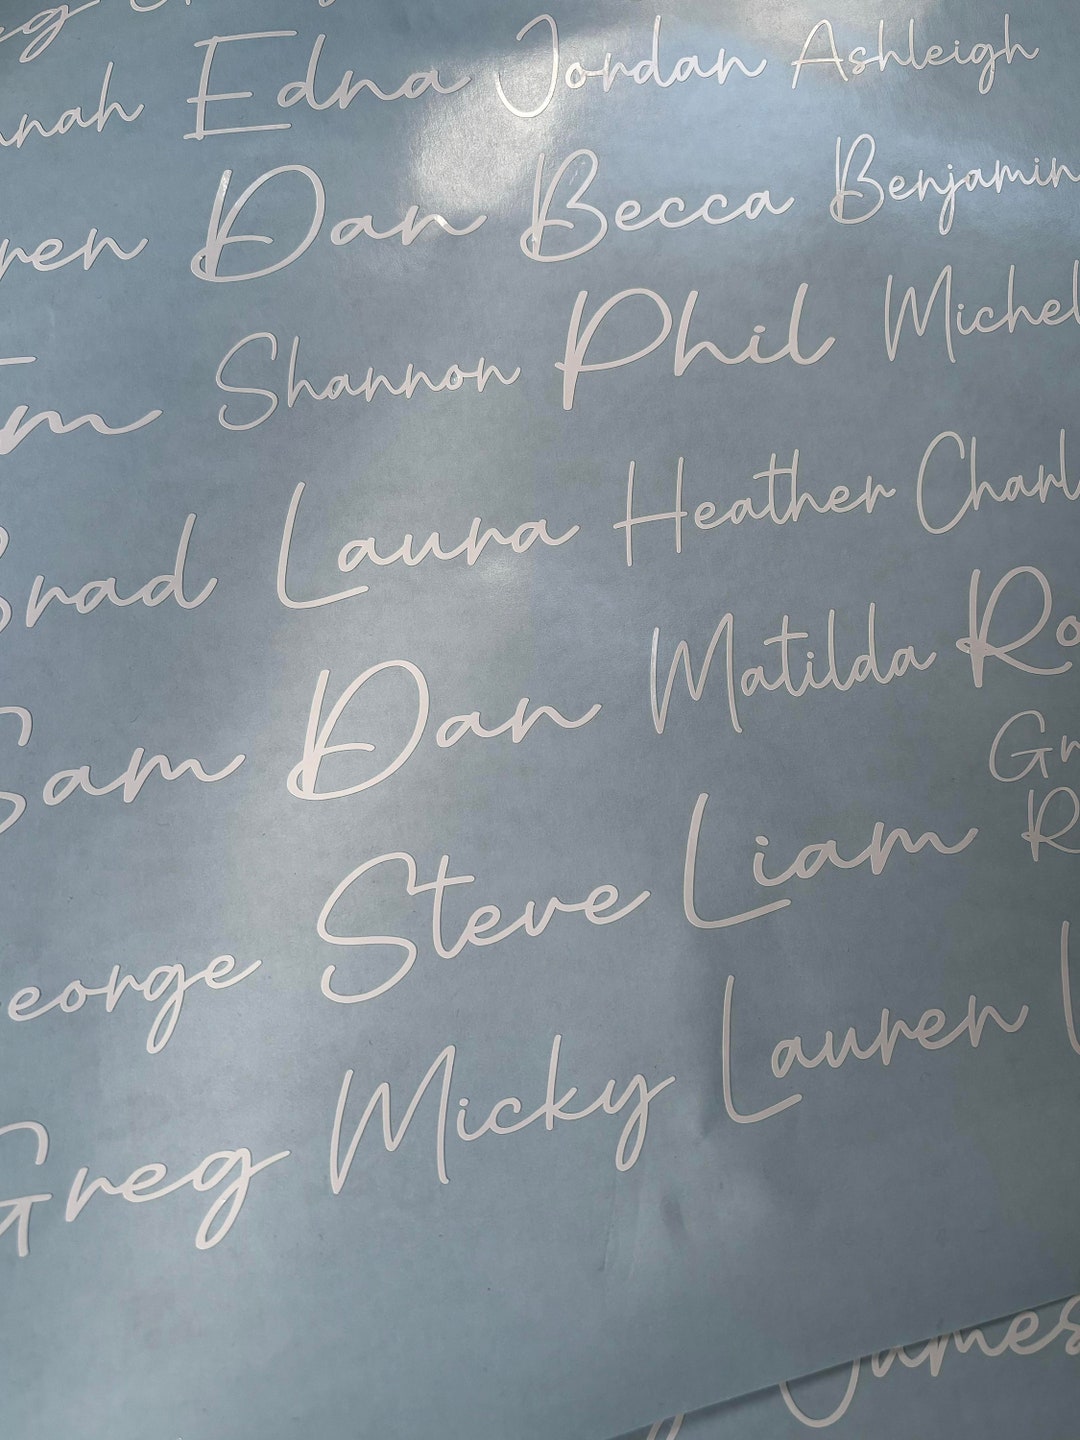 Edna Jordan Ashleigh
Dan Becca Benjamin
Shannon Phil Michel
Brad Laura Heather Charl
Sam Dan Matilda Ro
Gr
eorge Steve Liam R
Greg Micky Lauren
James